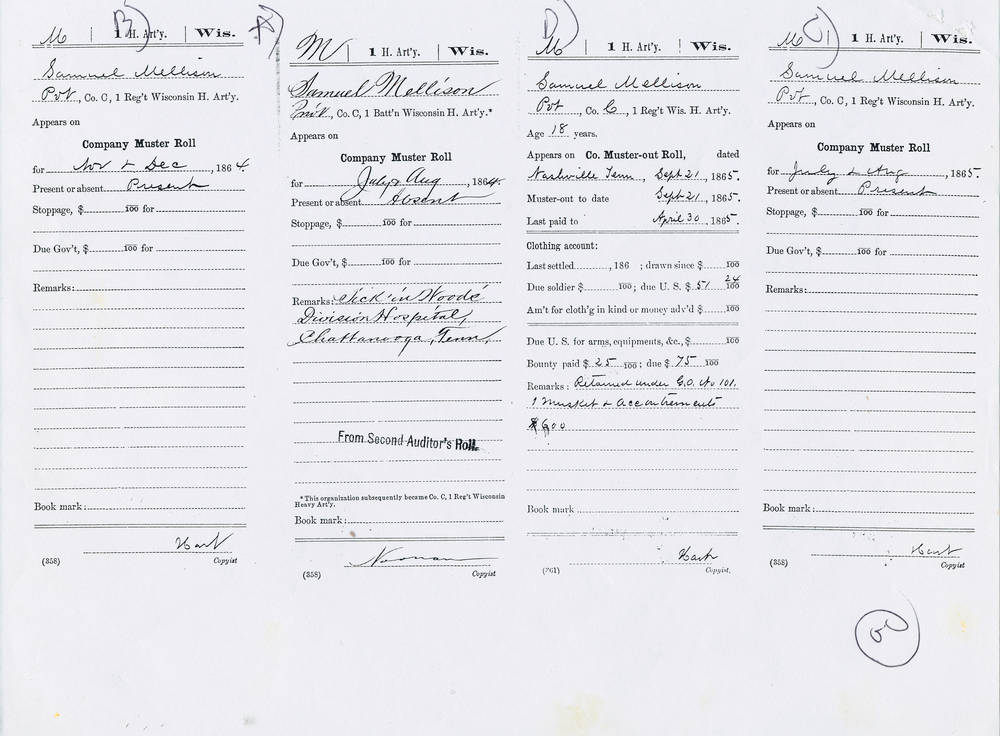 B)
M | 1 H. Art'y. | Wis.
Samuel Mellison
Pvt, Co. C, 1 Reg't Wisconsin H. Art'y.
Appears on
Company Muster Roll
for Nov & Dec, 1864.
Present or absent Present
Stoppage, $ 100 for
Due Gov't, $ 100 for
Remarks:
Book mark:
Hart
(358) Copyist
A)
M | 1 H. Art'y. | Wis.
Samuel Mellison
Priv't, Co. C, 1 Batt'n Wisconsin H. Art'y.*
Appears on
Company Muster Roll
for July & Aug, 1864.
Present or absent Absent
Stoppage, $ 100 for
Due Gov't, $ 100 for
Remarks: Sick in Woods
Division Hospital,
Chattanooga, Tenn.
From Second Auditor's Roll.
*This organization subsequently became Co. C, 1 Reg't Wisconsin
Heavy Art'y.
Book mark:
Noonan
(358) Copyist
D)
M | 1 H. Art'y. | Wis.
Samuel Mellison
Pvt, Co. C, 1 Reg't Wis. H. Art'y.
Age 18 years.
Appears on Co. Muster-out Roll, dated
Nashville Tenn, Sept 21, 1865.
Muster-out to date Sept 21, 1865.
Last paid to April 30, 1865.
Clothing account:
Last settled , 186 ; drawn since $ 100
Due soldier $ 100; due U. S. $ 51 24/100
Am't for cloth'g in kind or money adv'd $ 100
Due U. S. for arms, equipments, &c., $ 100
Bounty paid $ 25 100; due $ 75 100
Remarks: Retained under G.O. No 101.
1 Musket & accoutrements
$6.00
Book mark
Hart
(361) Copyist.
C)
M | 1 H. Art'y. | Wis.
Samuel Mellison
Pvt, Co. C, 1 Reg't Wisconsin H. Art'y.
Appears on
Company Muster Roll
for July & Aug, 1865.
Present or absent Present
Stoppage, $ 100 for
Due Gov't, $ 100 for
Remarks:
Book mark:
Hart
(358) Copyist